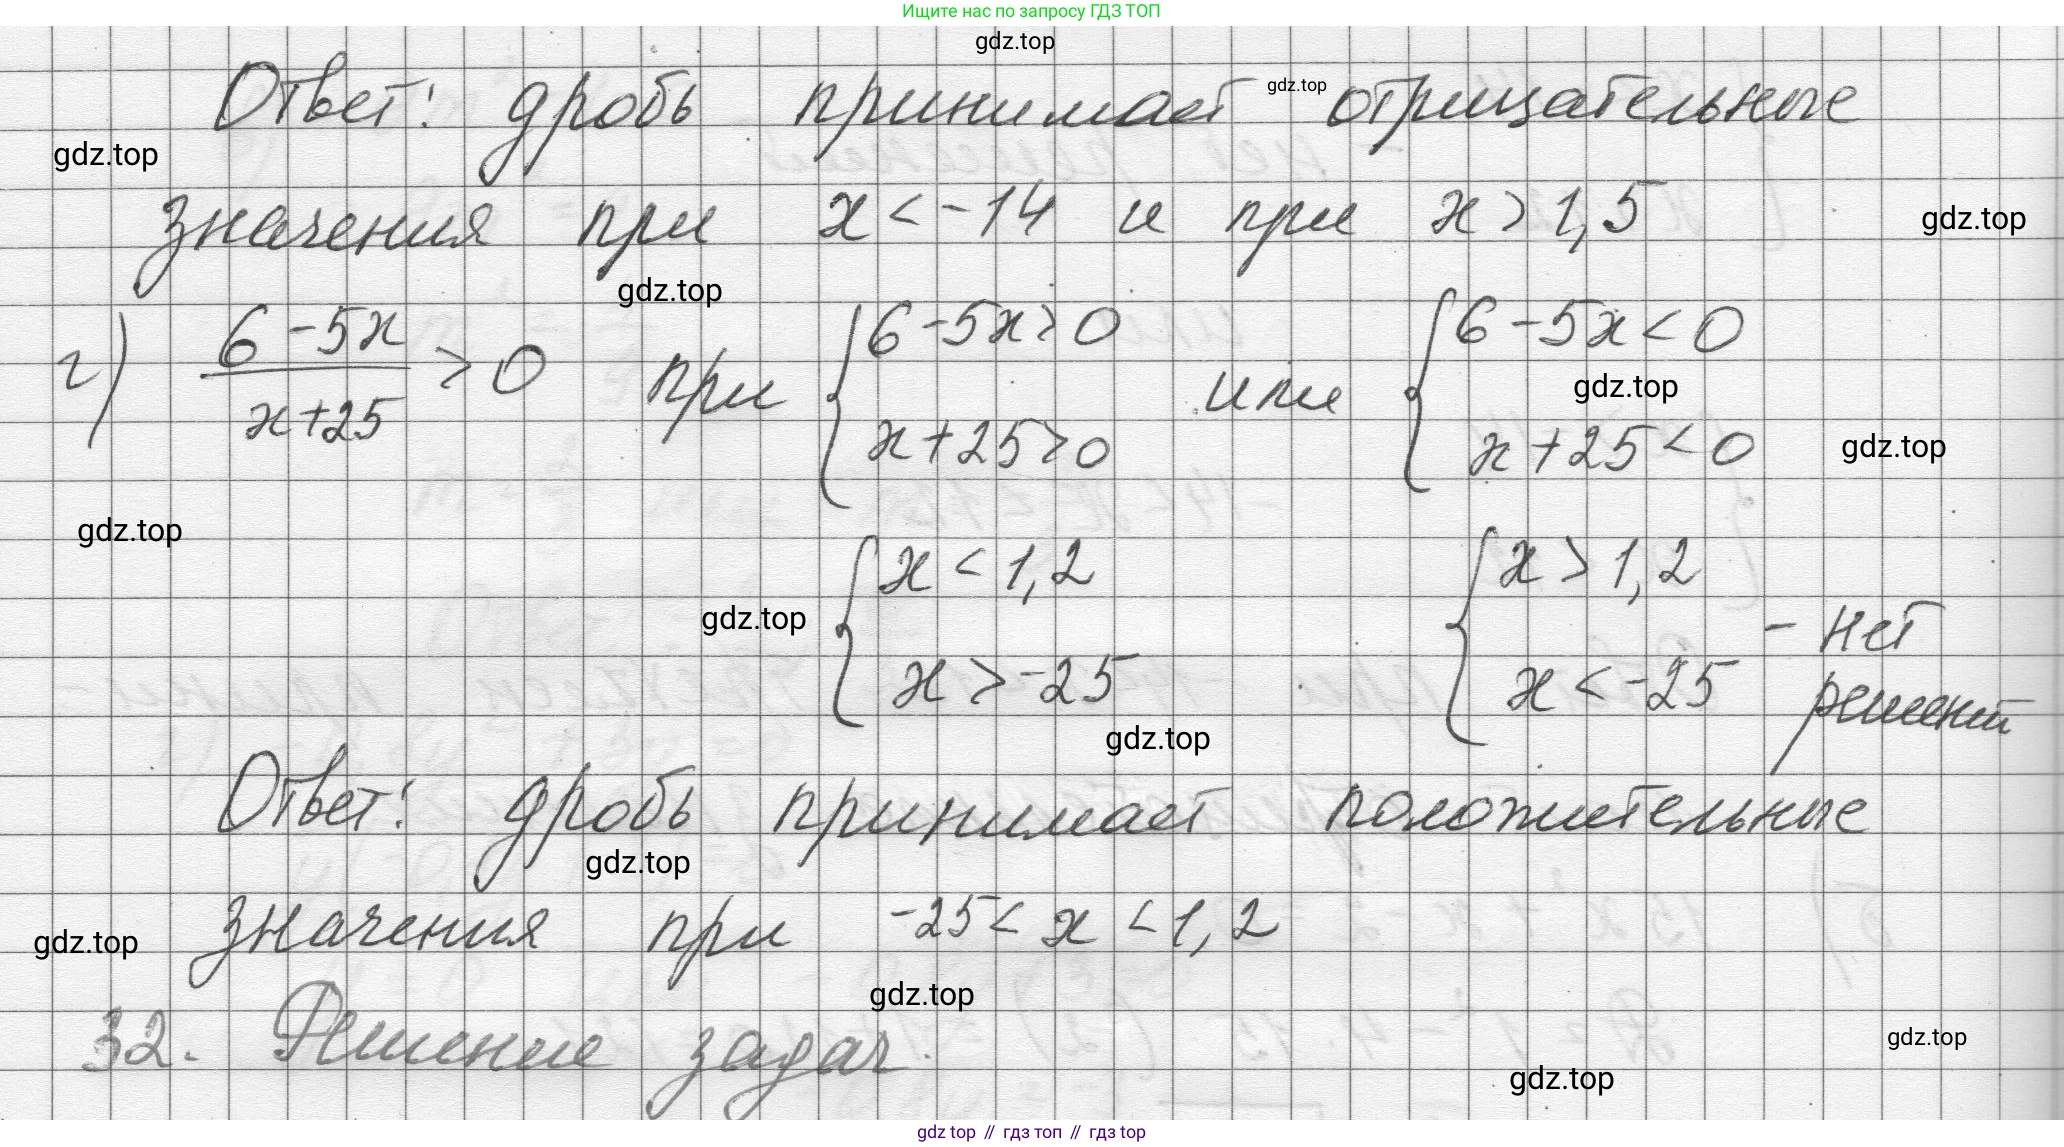 Ищите нас по запросу ГДЗ ТОП
gdz.top
Ответ: дробь принимает gdz.top отрицательные
gdz.top
значения при x < -14 и при x > 1,5
gdz.top
gdz.top
г) (6 - 5x)/(x + 25) > 0 при { 6 - 5x > 0 или { 6 - 5x < 0
gdz.top
x + 25 > 0 x + 25 < 0
gdz.top
gdz.top
{ x < 1,2 { x > 1,2
gdz.top
- нет
x > -25 x < -25 решений
gdz.top
Ответ: дробь принимает положительные
gdz.top
значения при -25 < x < 1,2
gdz.top
gdz.top
32. Решение задач.
gdz.top
gdz.top
gdz top // гдз топ // гдз top